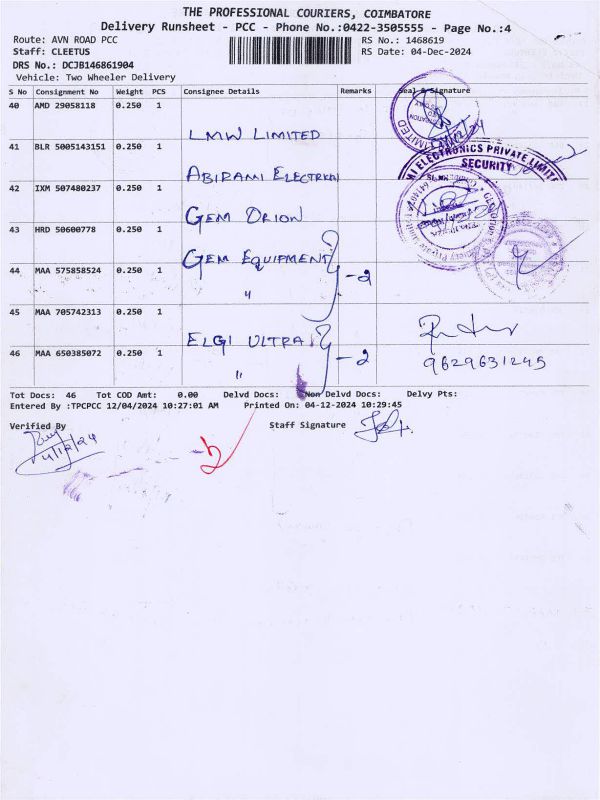 THE PROFESSIONAL COURIERS, COIMBATORE
Delivery Runsheet - PCC - Phone No.:0422-3505555 - Page No.:4
Route: AVN ROAD PCC RS No.: 1468619
Staff: CLEETUS RS Date: 04-Dec-2024
DRS No.: DCJB146861904
Vehicle: Two Wheeler Delivery
S No Consignment No Weight PCS Consignee Details Remarks Seal & Signature
40 AMD 29058118 0.250 1
LMW LIMITED
41 BLR 5005143151 0.250 1
ABIRAMI ELECTRICAL
MI ELECTRONICS PRIVATE LIMITED
SECURITY
42 IXM 507480237 0.250 1
GEM ORION
43 HRD 50600778 0.250 1
GEM EQUIPMENT
44 MAA 575858524 0.250 1
" -2
45 MAA 705742313 0.250 1
ELGI ULTRA
46 MAA 650385072 0.250 1
" -2
9629631245
Tot Docs: 46 Tot COD Amt: 0.00 Delvd Docs: Non Delvd Docs: Delvy Pts:
Entered By :TPCPCC 12/04/2024 10:27:01 AM Printed On: 04-12-2024 10:29:45
Verified By Staff Signature
4/12/24